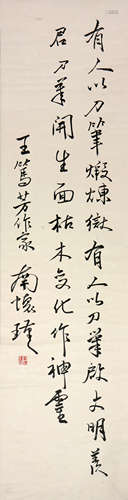 有人以刀筆煅煉獄有人以刀筆啟文明羨
君刀筆開生面枯木变化作神靈
王篤芳作家
南懷瑾